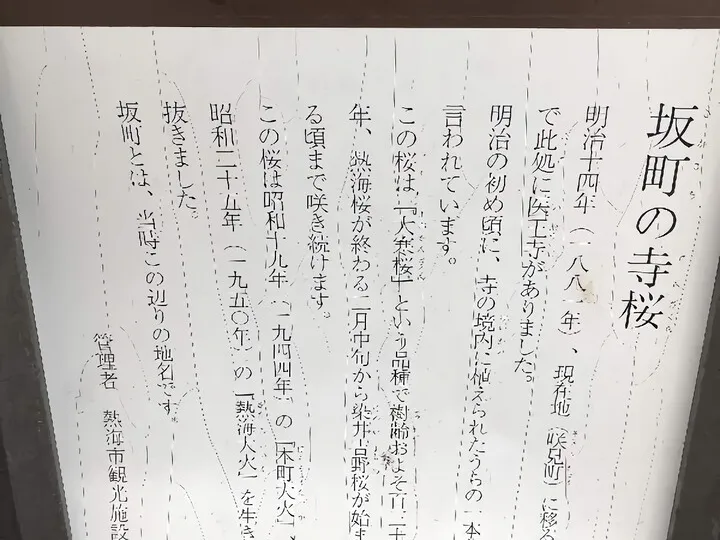 坂町の寺桜
明治十四年（一八八一年）、現在地（咲見町）に移る
で此処に医王寺がありました。
明治の初め頃に、寺の境内に植えられたうちの一本
言われています。
この桜は、「大寒桜」という品種で樹齢およそ百二十
年、熱海桜が終わる二月中旬から染井吉野桜が始ま
る頃まで咲き続けます。
この桜は昭和十九年（一九四四年）の「本町大火」、
昭和二十五年（一九五〇年）の「熱海大火」を生き
抜きました。
坂町とは、当時この辺りの地名です
管理者　熱海市観光施設